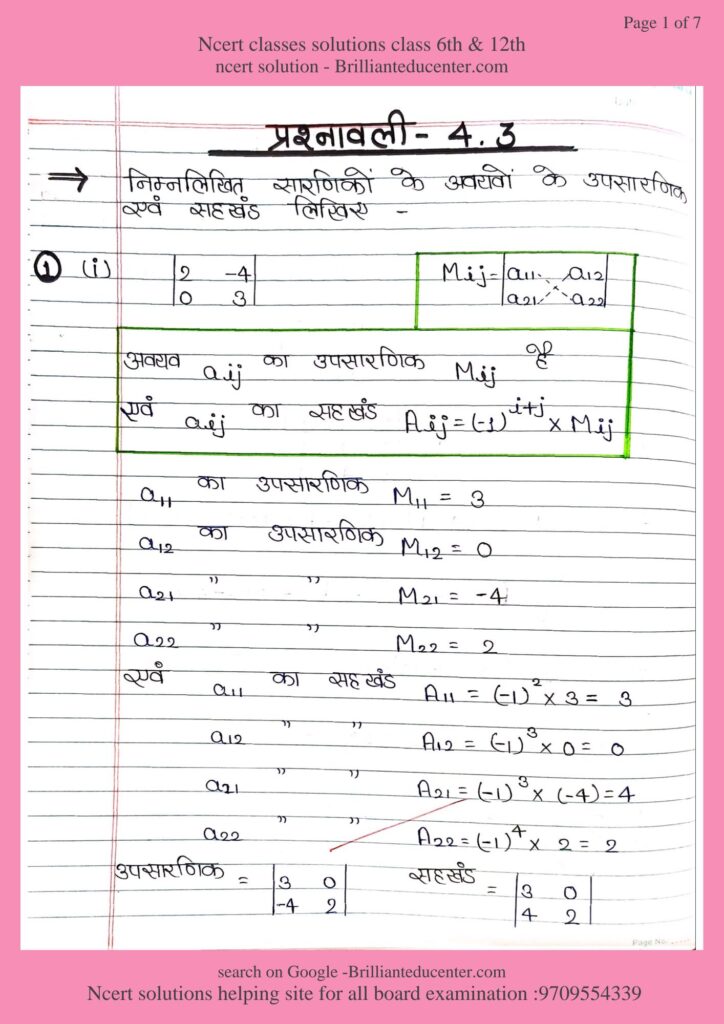 Page 1 of 7
Ncert classes solutions class 6th & 12th
ncert solution - Brillianteducenter.com
प्रश्नावली - 4.3
⇒ निम्नलिखित सारणिकों के अवयवों के उपसारणिक
एवं सहखंड लिखिए -
① (i) |2 -4| Mij = |a11 a12|
|0 3| |a21 a22|
अवयव aij का उपसारणिक Mij है
एवं aij का सहखंड Aij = (-1)^i+j × Mij
a11 का उपसारणिक M11 = 3
a12 का उपसारणिक M12 = 0
a21 " " M21 = -4
a22 " " M22 = 2
एवं a11 का सहखंड A11 = (-1)^2 × 3 = 3
a12 " " A12 = (-1)^3 × 0 = 0
a21 " " A21 = (-1)^3 × (-4) = 4
a22 " " A22 = (-1)^4 × 2 = 2
उपसारणिक = |3 0| सहखंड = |3 0|
|-4 2| |4 2|
search on Google -Brillianteducenter.com
Ncert solutions helping site for all board examination :9709554339